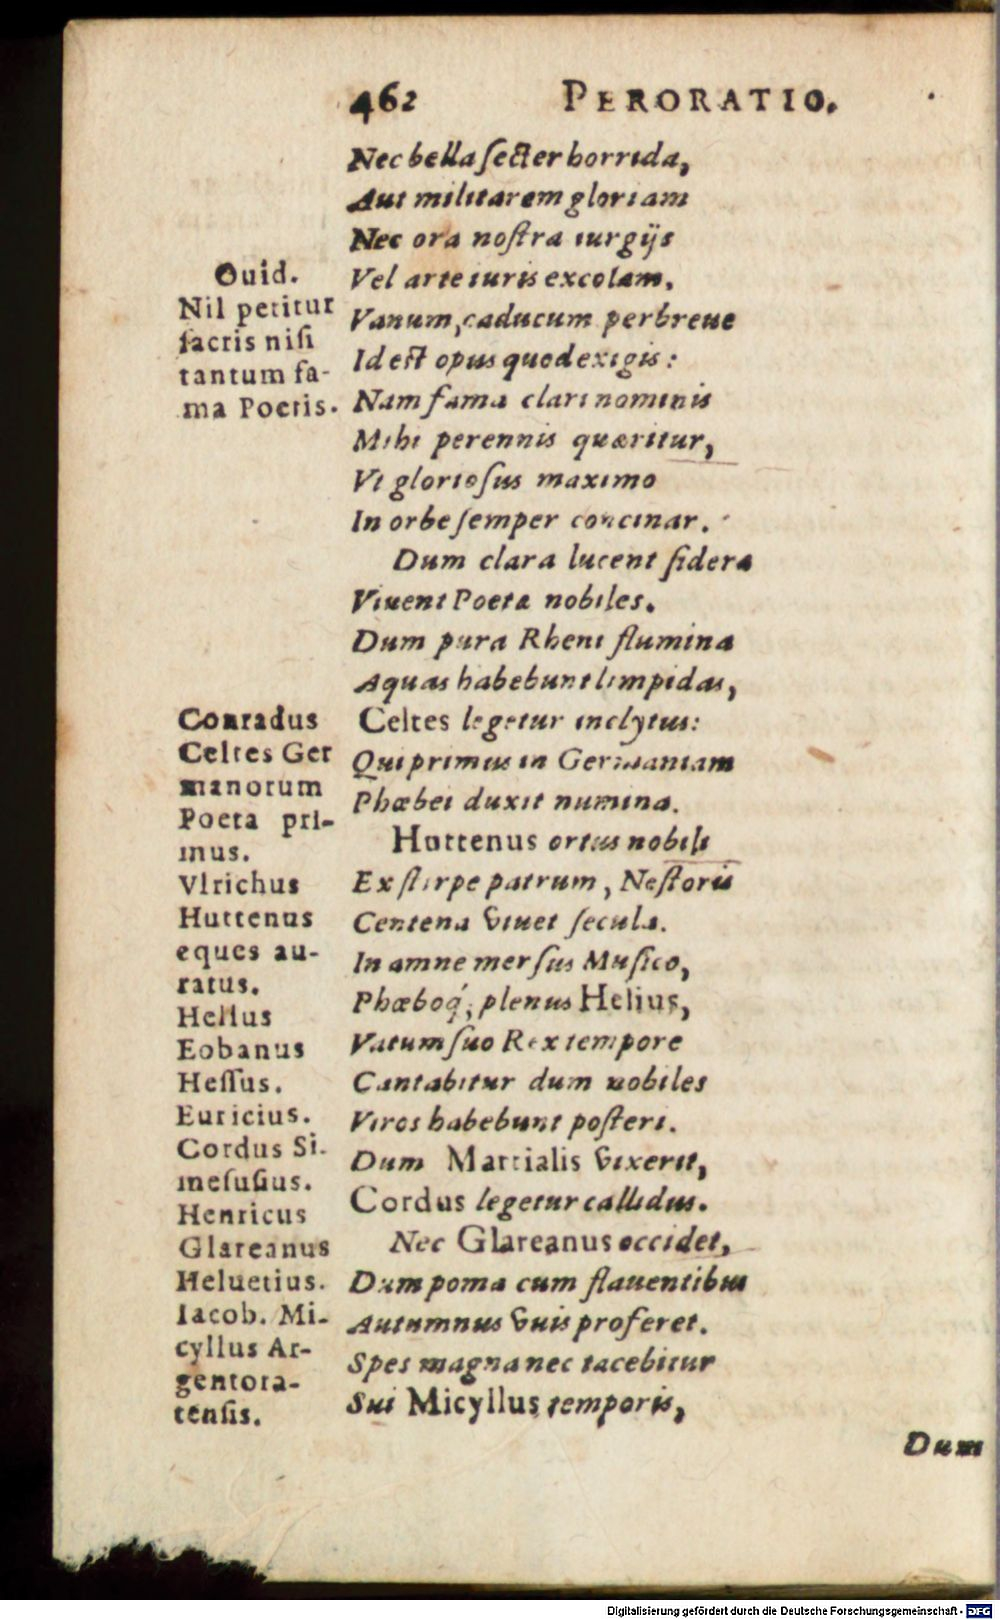 462 PERORATIO.
Nec bella ſecter horrida,
Aut militarem gloriam
Nec ora noſtra iurgijs
Vel arte iuris excolam.
Vanum, caducum perbreue
Id eſt opus quod exigis:
Nam fama clari nominis
Mihi perennis quæritur,
Vt glorioſus maximo
In orbe ſemper concinar.
Dum clara lucent ſidera
Viuent Poetæ nobiles.
Dum pura Rheni flumina
Aquas habebunt limpidas,
Celtes legetur inclytus:
Qui primus in Germaniam
Phœbei duxit numina.
Huttenus ortus nobili
Ex ſtirpe patrum, Neſtoris
Centena viuet ſecula.
In amne merſus Muſico,
Phœboq́; plenus Helius,
Vatum ſuo Rex tempore
Cantabitur dum nobiles
Viros habebunt poſteri.
Dum Martialis vixerit,
Cordus legetur callidus.
Nec Glareanus occidet,
Dum poma cum flauentibus
Autumnus vuis proferet.
Spes magna nec tacebitur
Sui Micyllus temporis,
Dum
Ouid.
Nil petitur
ſacris niſi
tantum fa-
ma Poetis.
Conradus
Celtes Ger
manorum
Poeta pri-
mus.
Vlrichus
Huttenus
eques au-
ratus.
Helius
Eobanus
Heſſus.
Euricius.
Cordus Si-
meſuſius.
Henricus
Glareanus
Heluetius.
Iacob. Mi-
cyllus Ar-
gentora-
tenſis.
Digitalisierung gefördert durch die Deutsche Forschungsgemeinschaft - DFG